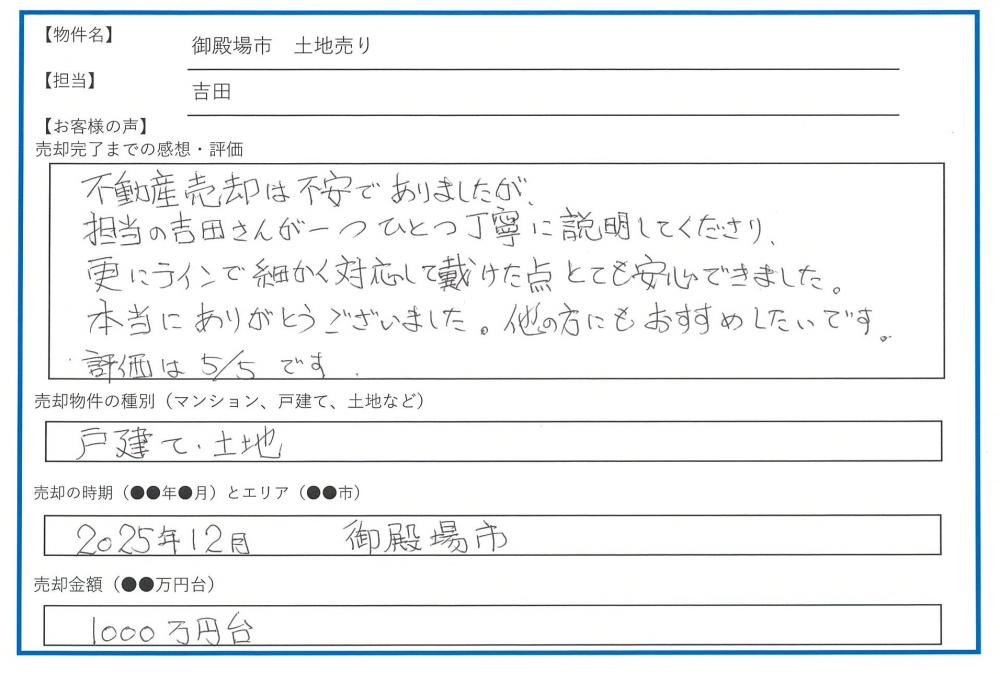 【物件名】
御殿場市　土地売り
【担当】
吉田
【お客様の声】
売却完了までの感想・評価
不動産売却は不安でありましたが、
担当の吉田さんが一つひとつ丁寧に説明してくださり、
更にラインで細かく対応して戴けた点とても安心できました。
本当にありがとうございました。他の方にもおすすめしたいです。
評価は 5/5 です.
売却物件の種別（マンション、戸建て、土地など）
戸建て・土地
売却の時期（●●年●月）とエリア（●●市）
2025年12月　御殿場市
売却金額（●●万円台）
1000万円台